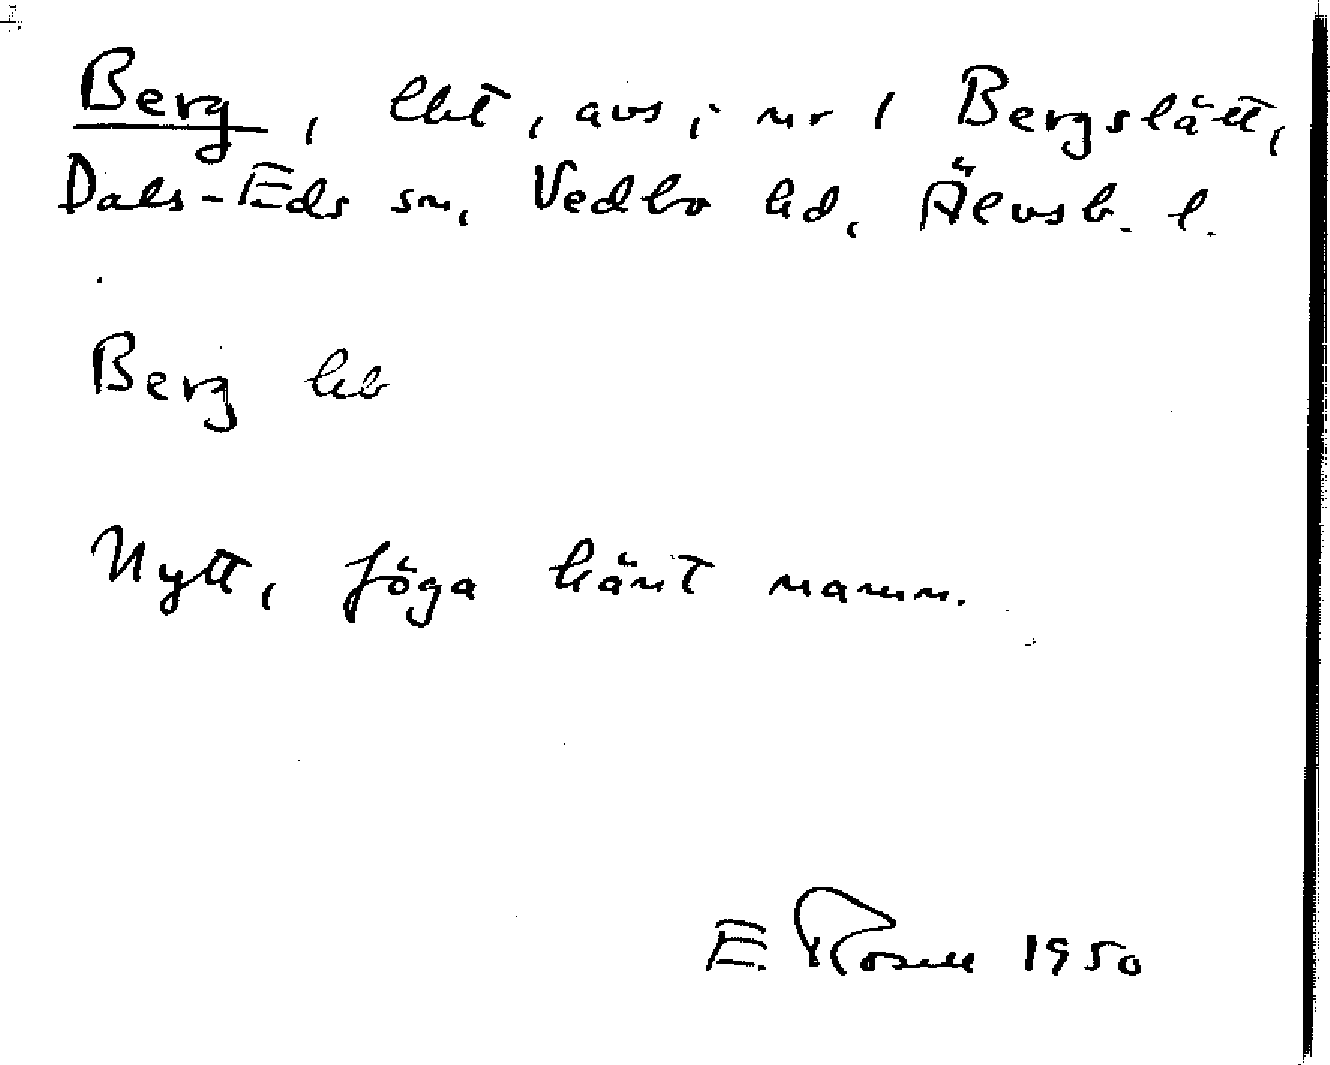 Berg, lht, avs, nr 1 Bergslätt,
Dals-Eds sn, Vedbo hd, Älvsb. l.
Berg
Nytt, föga känt namn.
E. Rosell 1950